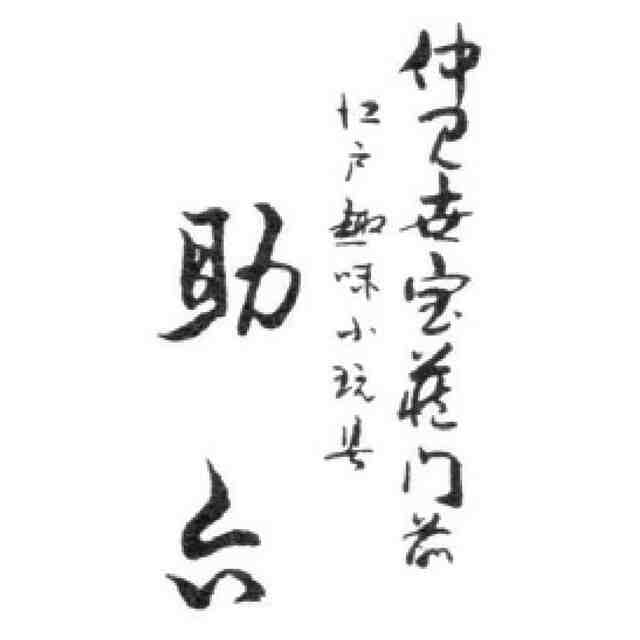 仲見世宝蔵門前
江戸趣味小玩具
助六